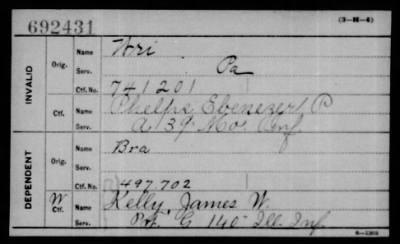 692431
(3-H-4)
INVALID
Orig.
Name
Wri
Serv.
Pa
Ctf. No.
741201
Ctf.
Name
Phelps, Ebenezer P
Serv.
A 39 Mo. Inf.
DEPENDENT
Orig.
Name
Bra
Serv.
Ctf. No.
497.702
W
Ctf.
Name
Kelly, James W.
Serv.
Pvt. G 140 Ill. Inf.